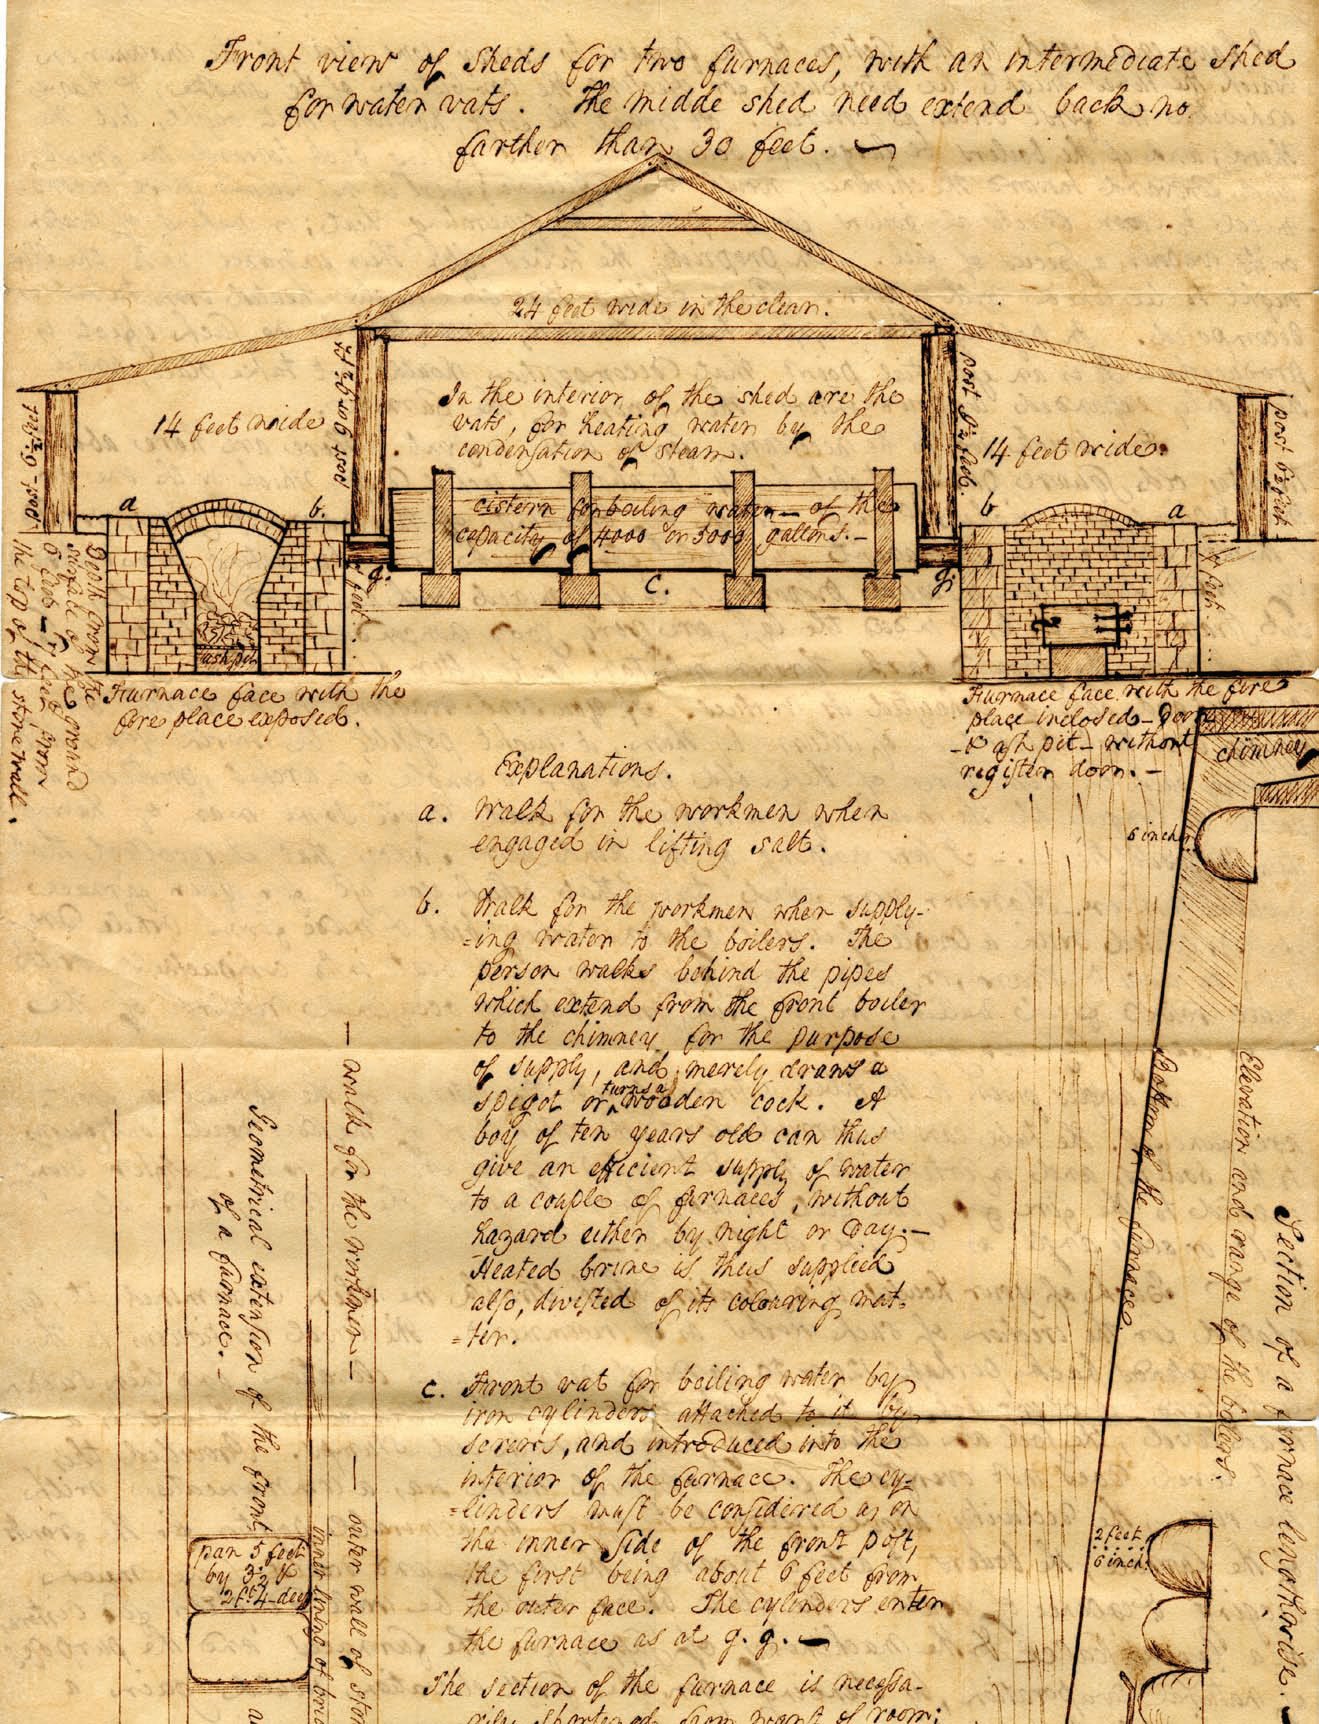 Front view of sheds for two furnaces, with an intermediate shed
for water vats. The midde shed need extend back no
farther than 30 feet.
24 feet wide in the clear.
14 feet wide
post 9 or 9½ ft
In the interior of the shed are the
vats, for heating water by the
condensation of steam.
post 9½ feet.
14 feet wide.
post 6½ feet
post 6½ feet
a
b.
cistern for boiling water — of the
capacity of 4000 or 5000 gallons. —
b
a
g.
c.
g.
7 feet
7 feet
ash pit
Depth from the
surface of the ground
6 feet — 7 feet from
the top of the stone wall.
Furnace face with the
fire place exposed.
Furnace face with the fire
place inclosed — Door
- & ash pit — without
register door. —
chimney
6 inch.
Explanations.
a. Walk for the workmen when
engaged in lifting salt.
b. Walk for the workmen when supply-
=ing water to the boilers. The
person walks behind the pipes
which extend from the front boiler
to the chimney for the purpose
of supply, and merely draws a
spigot or turns a wooden cock. A
boy of ten years old can thus
give an efficient supply of water
to a couple of furnaces, without
hazard either by night or day. —
Heated brine is thus supplied
also, divested of its colouring mat-
=ter.
c. Front vat for boiling water by
iron cylinders attached to it by
screws, and introduced into the
interior of the furnace. The cy-
=linders must be considered as on
the inner side of the front post,
the first being about 6 feet from
the outer face. The cylinders enter
the furnace as at g. g. —
The section of the furnace is necessa-
rily shortened from want of room;
— walk for the workmen —
— outer wall of ston
inner lining of bric
Geometrical extension of the front
of a furnace. —
pan 5 feet
by 3½ &
2 ft 4 deep
Bottom of the furnace.
Elevation and range of the boilers.
Section of a furnace lengthwise. —
2 feet
6 inch.